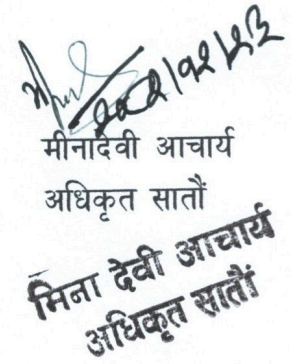 मीनादेवी आचार्य
अधिकृत सातौं
मिना देवी आचार्य
अधिकृत सातौं